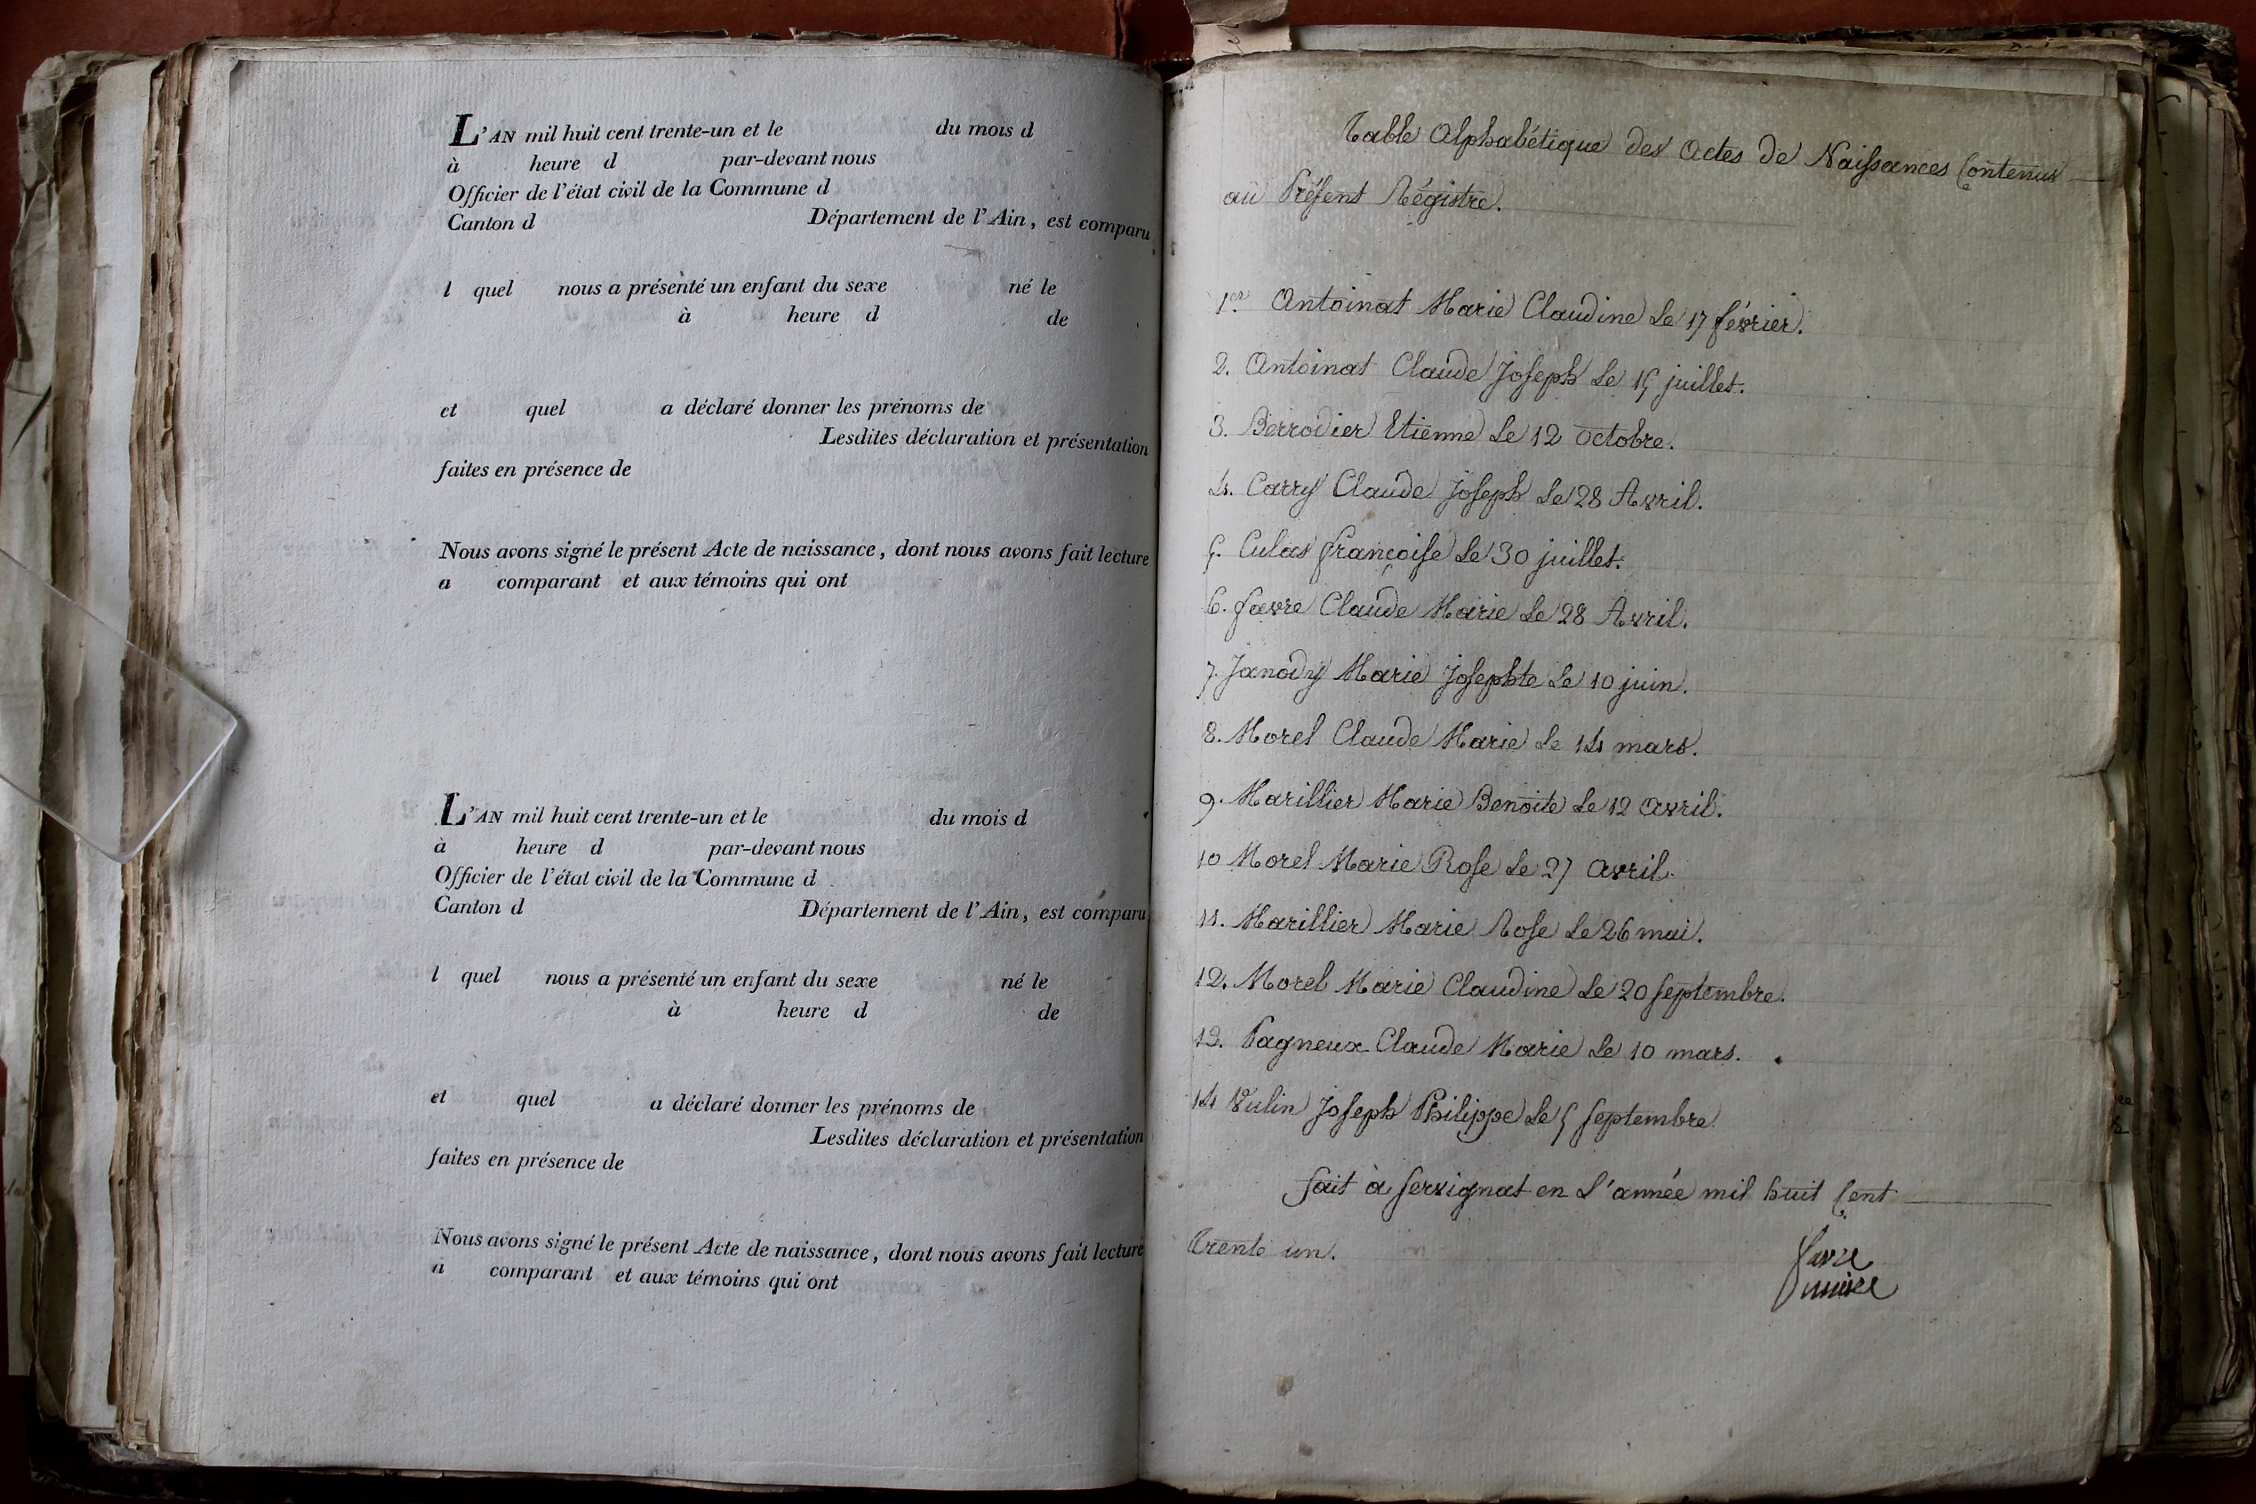 L'AN mil huit cent trente-un et le du mois d
à heure d par-devant nous
Officier de l'état civil de la Commune d
Canton d Département de l'Ain, est comparu
l quel nous a présenté un enfant du sexe né le
à heure d de
et quel a déclaré donner les prénoms de
Lesdites déclaration et présentation
faites en présence de
Nous avons signé le présent Acte de naissance, dont nous avons fait lecture
a comparant et aux témoins qui ont
L'AN mil huit cent trente-un et le du mois d
à heure d par-devant nous
Officier de l'état civil de la Commune d
Canton d Département de l'Ain, est comparu
l quel nous a présenté un enfant du sexe né le
à heure d de
et quel a déclaré donner les prénoms de
Lesdites déclaration et présentation
faites en présence de
Nous avons signé le présent Acte de naissance, dont nous avons fait lecture
a comparant et aux témoins qui ont
Table Alphabétique des Actes de Naissances Contenus
au Présent Régistre.
1er. Antoinat Marie Claudine Le 17 février.
2. Antoinat Claude Joseph Le 15 juillet.
3. Berrodier Etienne Le 12 octobre.
4. Carry Claude Joseph Le 28 Avril.
5. Culas françoise Le 30 juillet.
6. favre Claude Marie Le 28 Avril.
7. Janody Marie Josephte Le 10 juin.
8. Morel Claude Marie Le 14 mars.
9. Marillier Marie Benoite Le 12 avril.
10 Morel Marie Rose Le 27 avril.
11. Marillier Marie Rose Le 26 mai.
12. Morel Marie Claudine Le 20 septembre.
13. Pagneux Claude Marie Le 10 mars.
14 Vulin Joseph Philippe Le 5 septembre
fait à servignat en L'année mil huit Cent
Trente un.
favre
maire